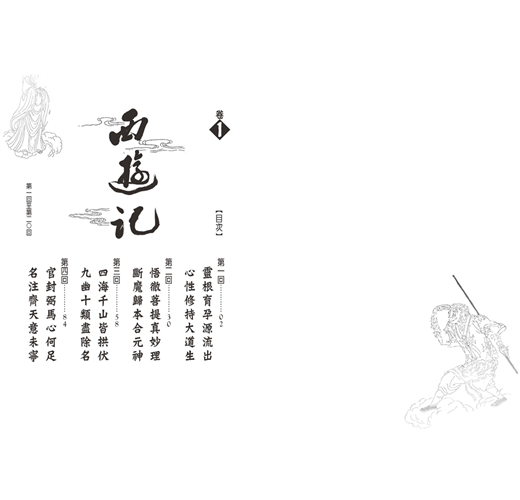 卷1
西遊记
第一回至第二〇回
【目次】
第一回………02
靈根育孕源流出
心性修持大道生
第二回………30
悟徹菩提真妙理
斷魔歸本合元神
第三回………58
四海千山皆拱伏
九幽十類盡除名
第四回………84
官封弼馬心何足
名注齊天意未寧